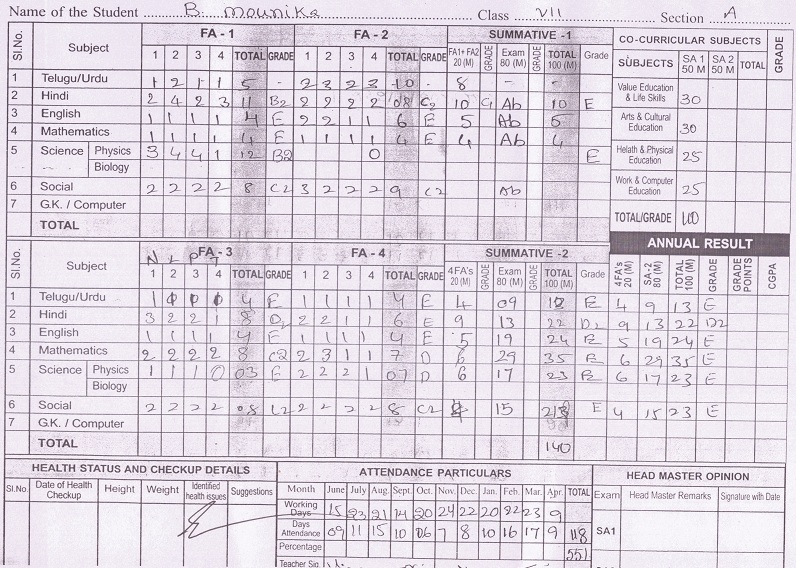 Name of the Student B. Mounika Class VII Section A
FA - 1 FA - 2 SUMMATIVE -1 CO-CURRICULAR SUBJECTS GRADE
Sl.No. Subject 1 2 3 4 TOTAL GRADE 1 2 3 4 TOTAL GRADE FA1+ FA2 20 (M) GRADE Exam 80 (M) GRADE TOTAL 100 (M) Grade SUBJECTS SA 1 50 M SA 2 50 M TOTAL
1 Telugu/Urdu 1 2 1 1 5 - 2 3 2 3 10 - 8 - -
2 Hindi 2 4 2 3 11 B2 2 2 2 2 08 C2 10 C1 Ab 10 E
3 English 1 1 1 1 4 E 2 2 1 1 6 E 5 Ab 5
4 Mathematics 1 1 1 1 4 E 1 1 1 1 4 E 4 Ab 4
5 Science Physics 3 4 4 1 12 B2 0 E
Biology
6 Social 2 2 2 2 8 C2 3 2 2 2 9 C2 Ab
7 G.K. / Computer
TOTAL
Value Education & Life Skills 30
Arts & Cultural Education 30
Helath & Physical Education 25
Work & Computer Education 25
TOTAL/GRADE 110
FA - 3 FA - 4 SUMMATIVE -2 ANNUAL RESULT
N L P T
Sl.No. Subject 1 2 3 4 TOTAL GRADE 1 2 3 4 TOTAL GRADE 4FA's 20 (M) GRADE Exam 80 (M) GRADE TOTAL 100 (M) Grade 4FA's 20 (M) SA-2 80 (M) TOTAL 100 (M) GRADE GRADE POINTS CGPA
1 Telugu/Urdu 1 0 0 0 4 E 1 1 1 1 4 E 4 09 E 4 9 13 E
2 Hindi 3 2 2 1 8 D2 2 2 1 1 6 E 9 13 22 D2 9 13 22 D2
3 English 1 1 1 1 4 E 1 1 1 1 4 E 5 19 24 E 5 19 24 E
4 Mathematics 2 2 2 2 8 C2 2 3 1 1 7 D 6 29 35 E 6 29 35 E
5 Science Physics 1 1 1 0 03 E 2 2 2 1 07 D 6 17 23 E 6 17 23 E
Biology
6 Social 2 2 2 2 08 C2 2 2 2 2 8 C2 15 E 4 15 23 E
7 G.K. / Computer
TOTAL 140
HEALTH STATUS AND CHECKUP DETAILS ATTENDANCE PARTICULARS HEAD MASTER OPINION
Sl.No. Date of Health Checkup Height Weight Identified health issues Suggestions Month June July Aug. Sept. Oct. Nov. Dec. Jan. Feb. Mar. Apr. TOTAL Exam Head Master Remarks Signature with Date
Working Days 15 23 21 14 20 24 22 20 22 23 9
Days Attendance 09 11 15 10 06 7 8 10 16 17 9 118 SA1
Percentage 55%
Teacher Sig.